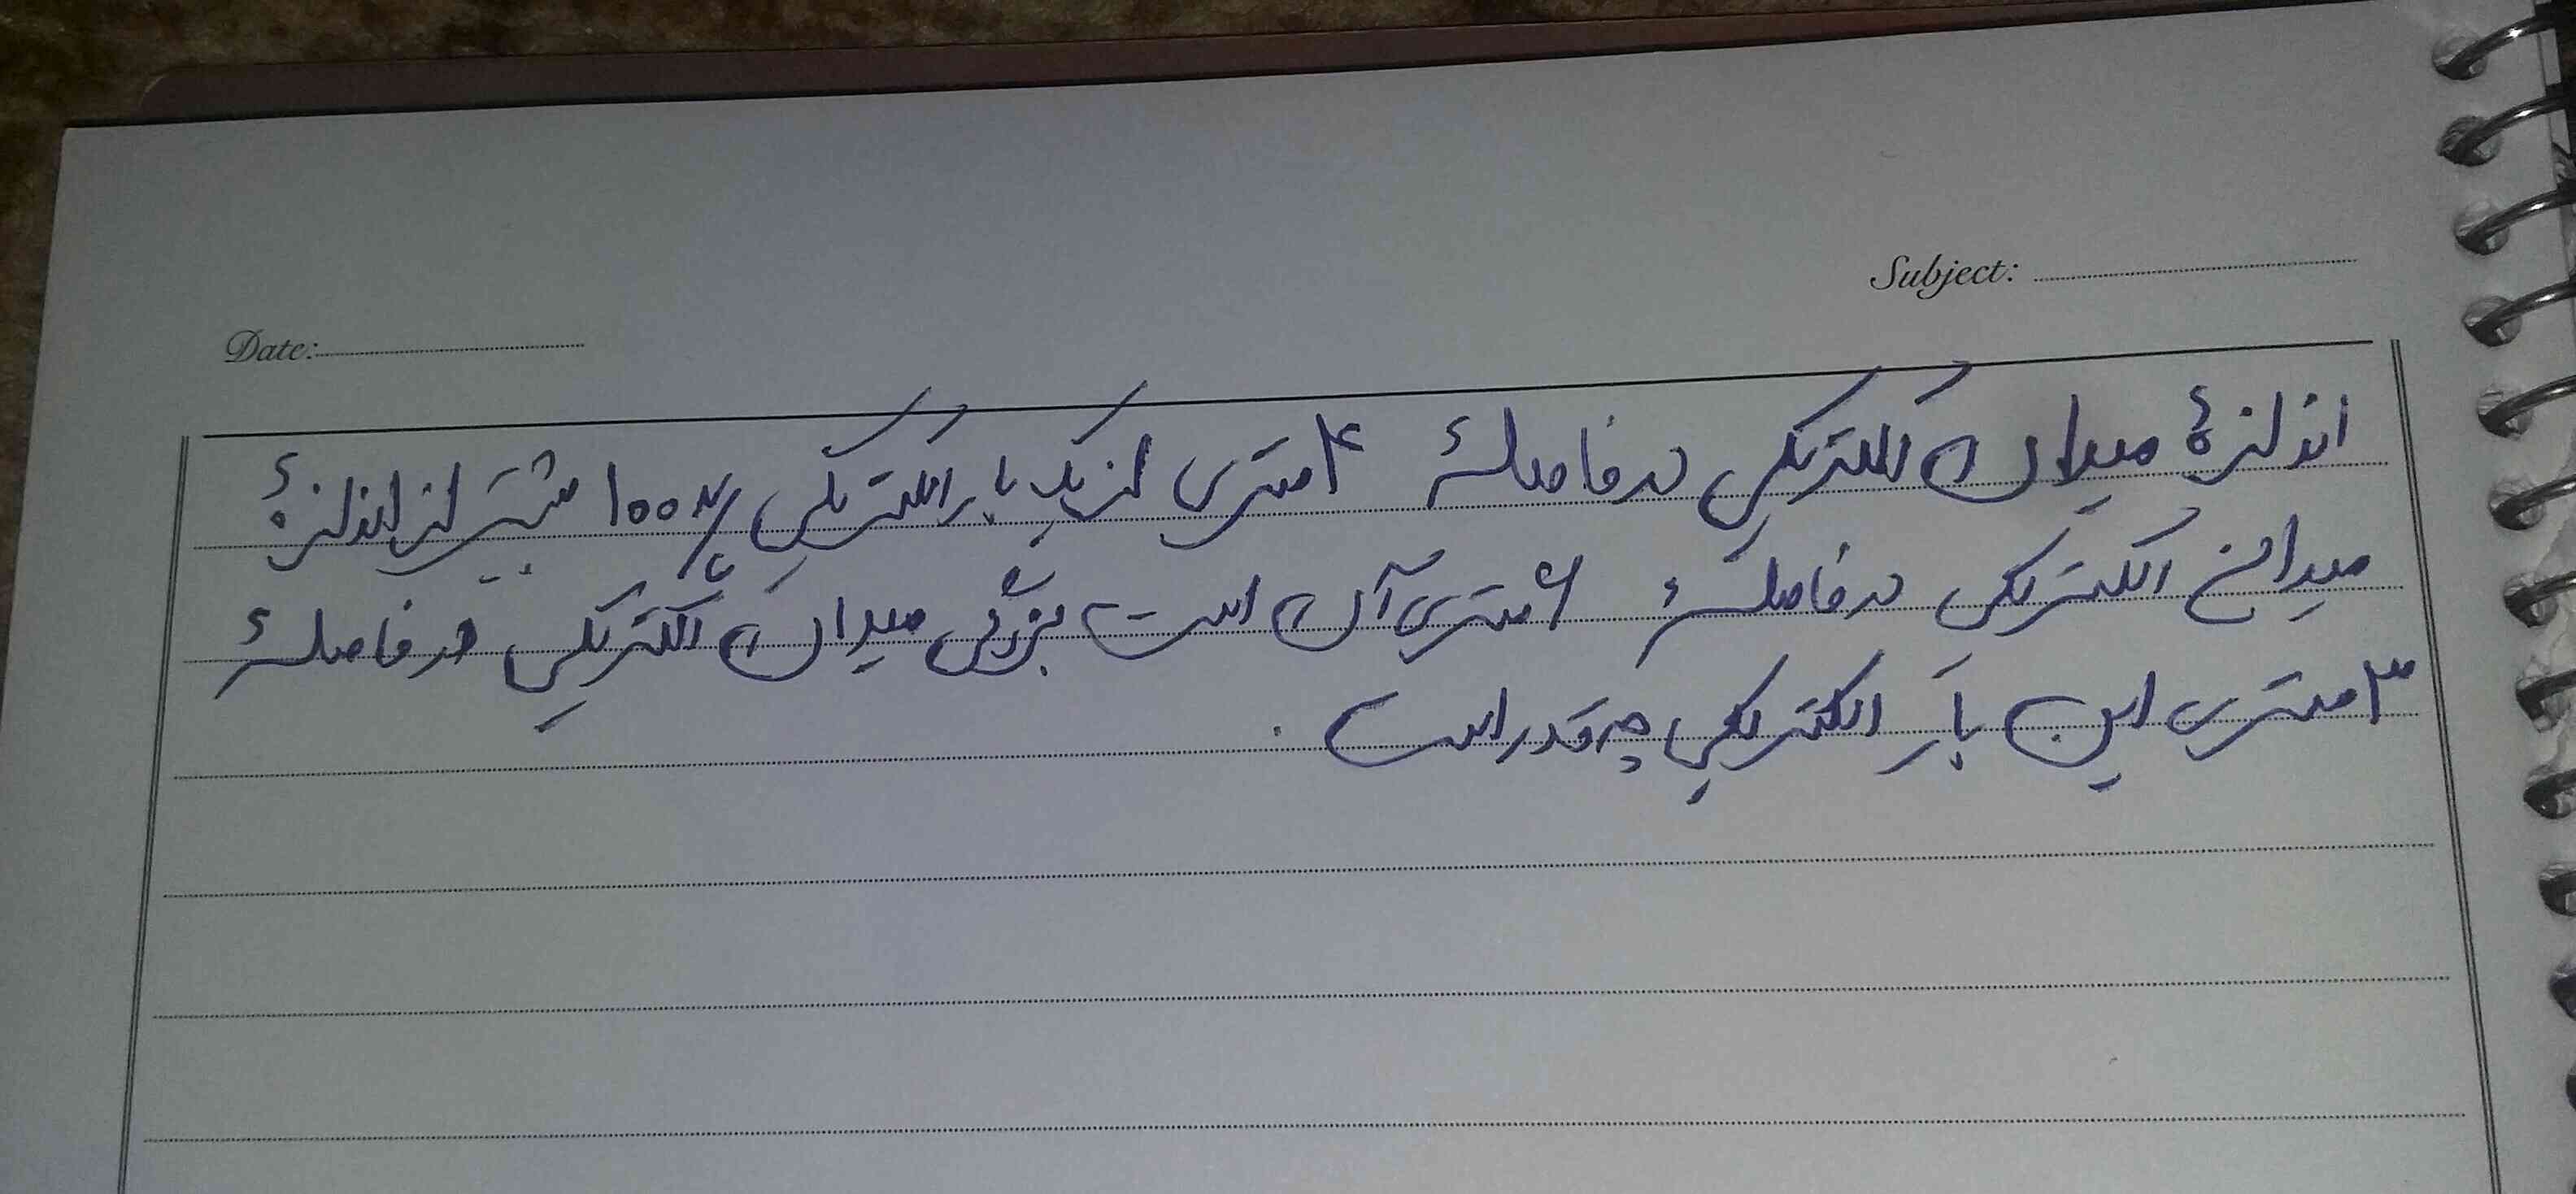 Subject:
Date:
اندازهٔ میدان الکتریکی در فاصلهٔ ۴ متری از یک بار الکتریکی ۱۰۰ بیشتر از اندازهٔ
میدان الکتریکی در فاصلهٔ ۶ متری آن است بزرگی میدان الکتریکی در فاصلهٔ
۳ متری این بار الکتریکی چه قدر است .